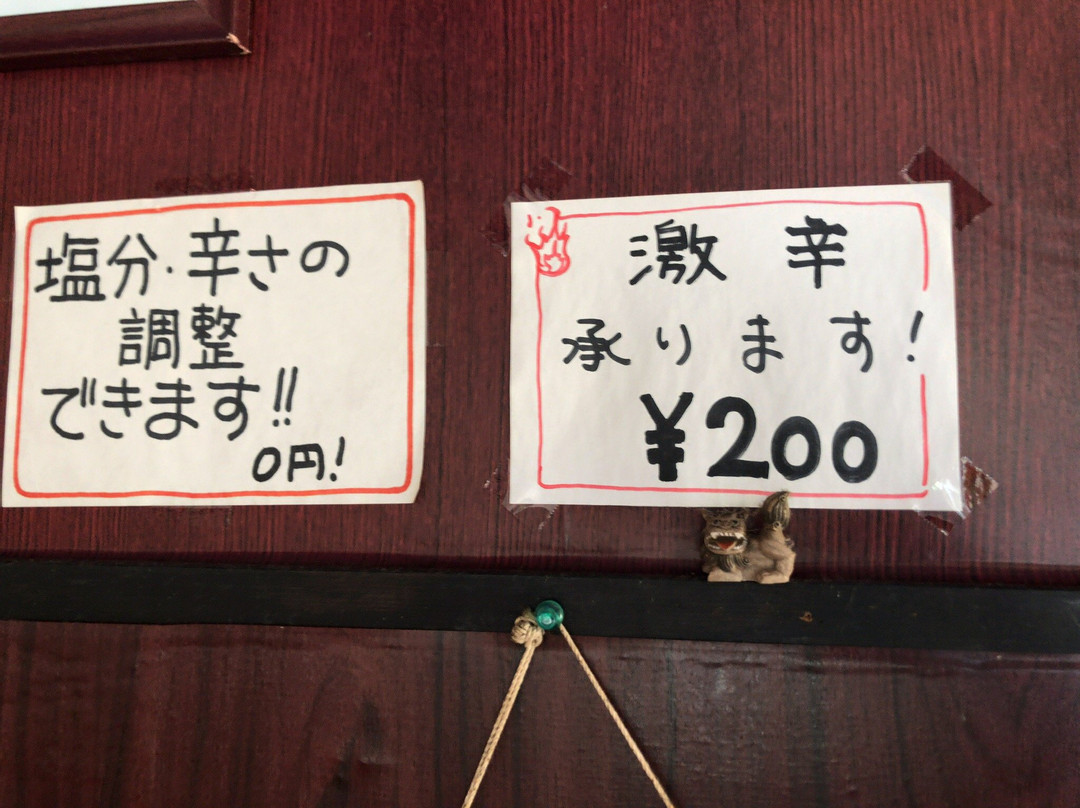 塩分・辛さの
調整
できます!!
0円!
激辛
承ります!
¥200